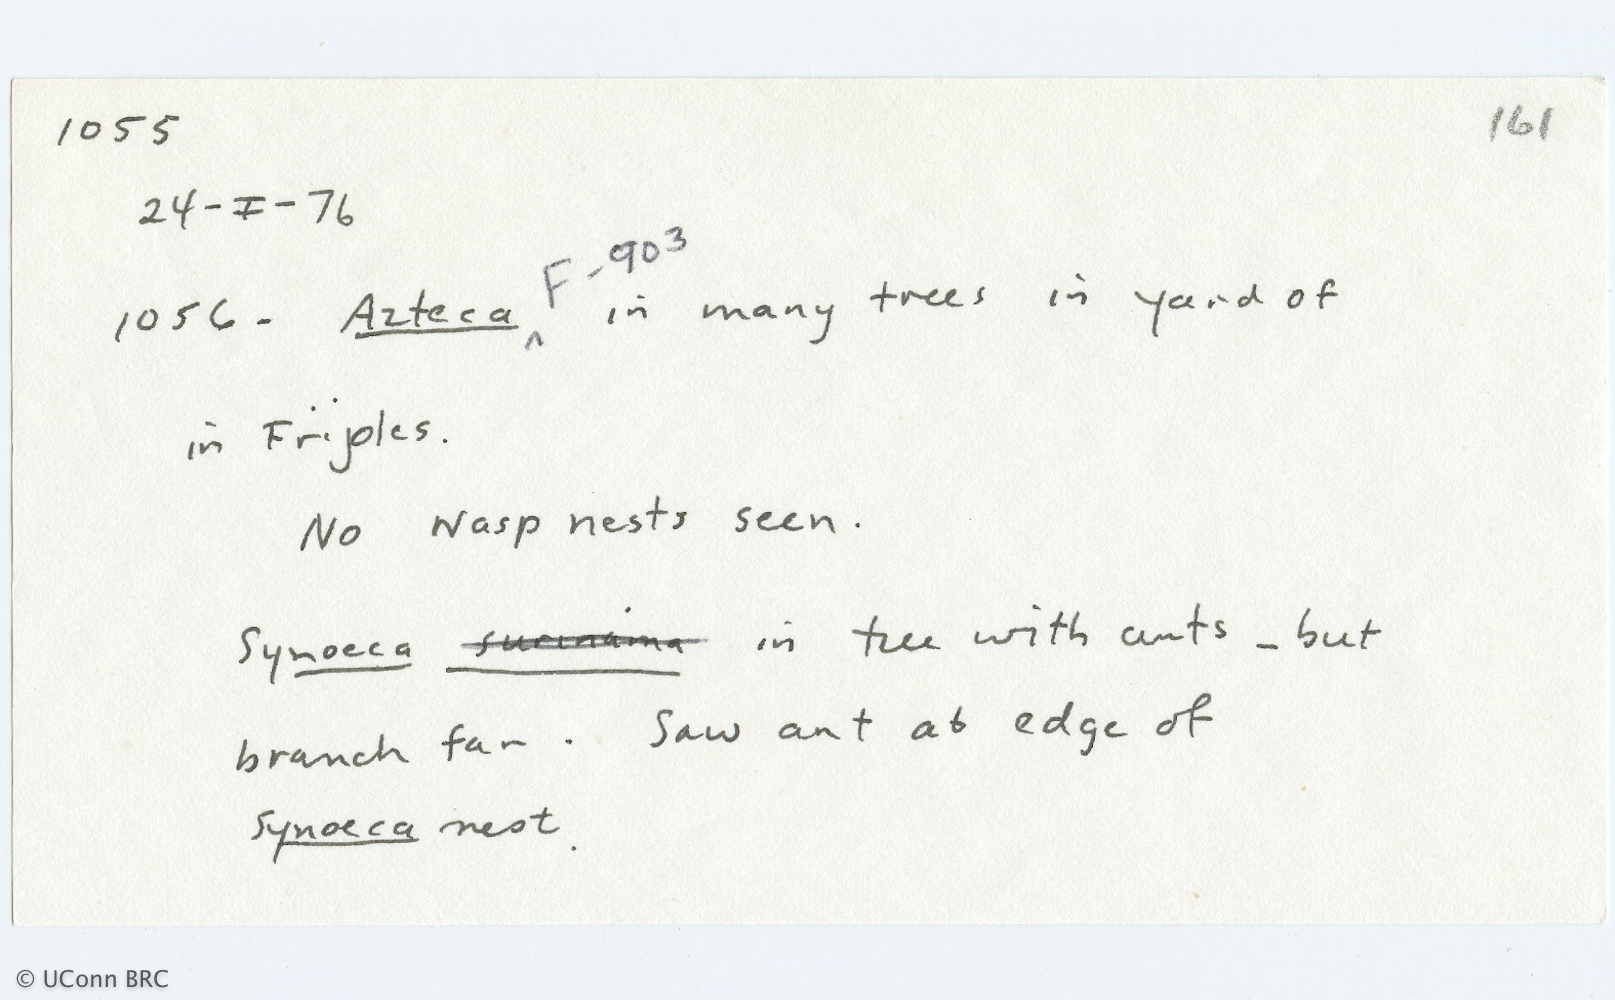 1055 161
24-I-76
1056- Azteca F-903 in many trees in yard of
in Frijoles.
No wasp nests seen.
Synoeca surinama in tree with ants - but
branch far. Saw ant at edge of
Synoeca nest.
© UConn BRC